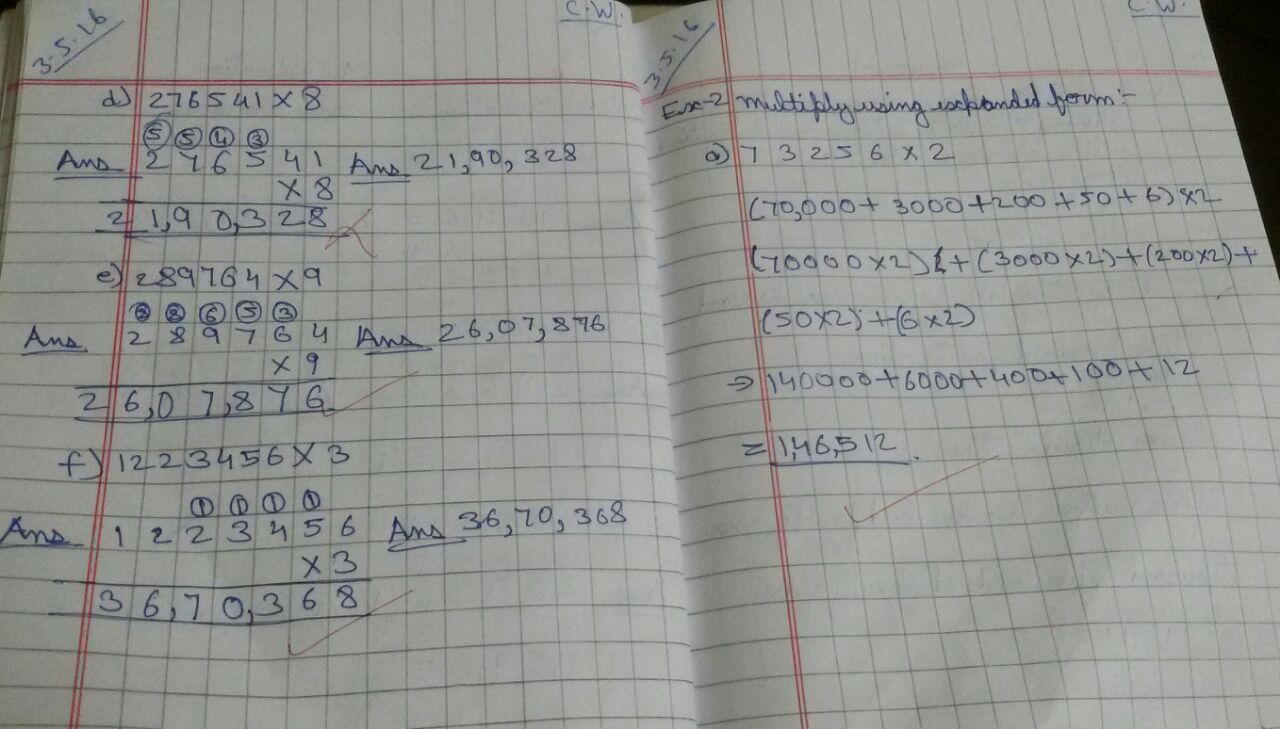 3.5.16
C.W.
d) 276541 x 8
5 5 4 3
Ans 2 7 6 5 4 1 Ans 21,90,328
x 8
2 1,9 0,3 2 8
e) 289764 x 9
8 8 6 5 3
Ans 2 8 9 7 6 4 Ans 26,07,876
x 9
2 6,0 7,8 7 6
f) 1223456 x 3
1 1 1 1
Ans 1 2 2 3 4 5 6 Ans 36,70,368
x 3
3 6,7 0,3 6 8
3.5.16
C.W.
Ex-2 Multiply using expanded form:-
a) 7 3 2 5 6 x 2
(70,000 + 3000 + 200 + 50 + 6) x 2
(70000 x 2) + (3000 x 2) + (200 x 2) +
(50 x 2) + (6 x 2)
⇒ 140000 + 6000 + 400 + 100 + 12
= 1,46,512.